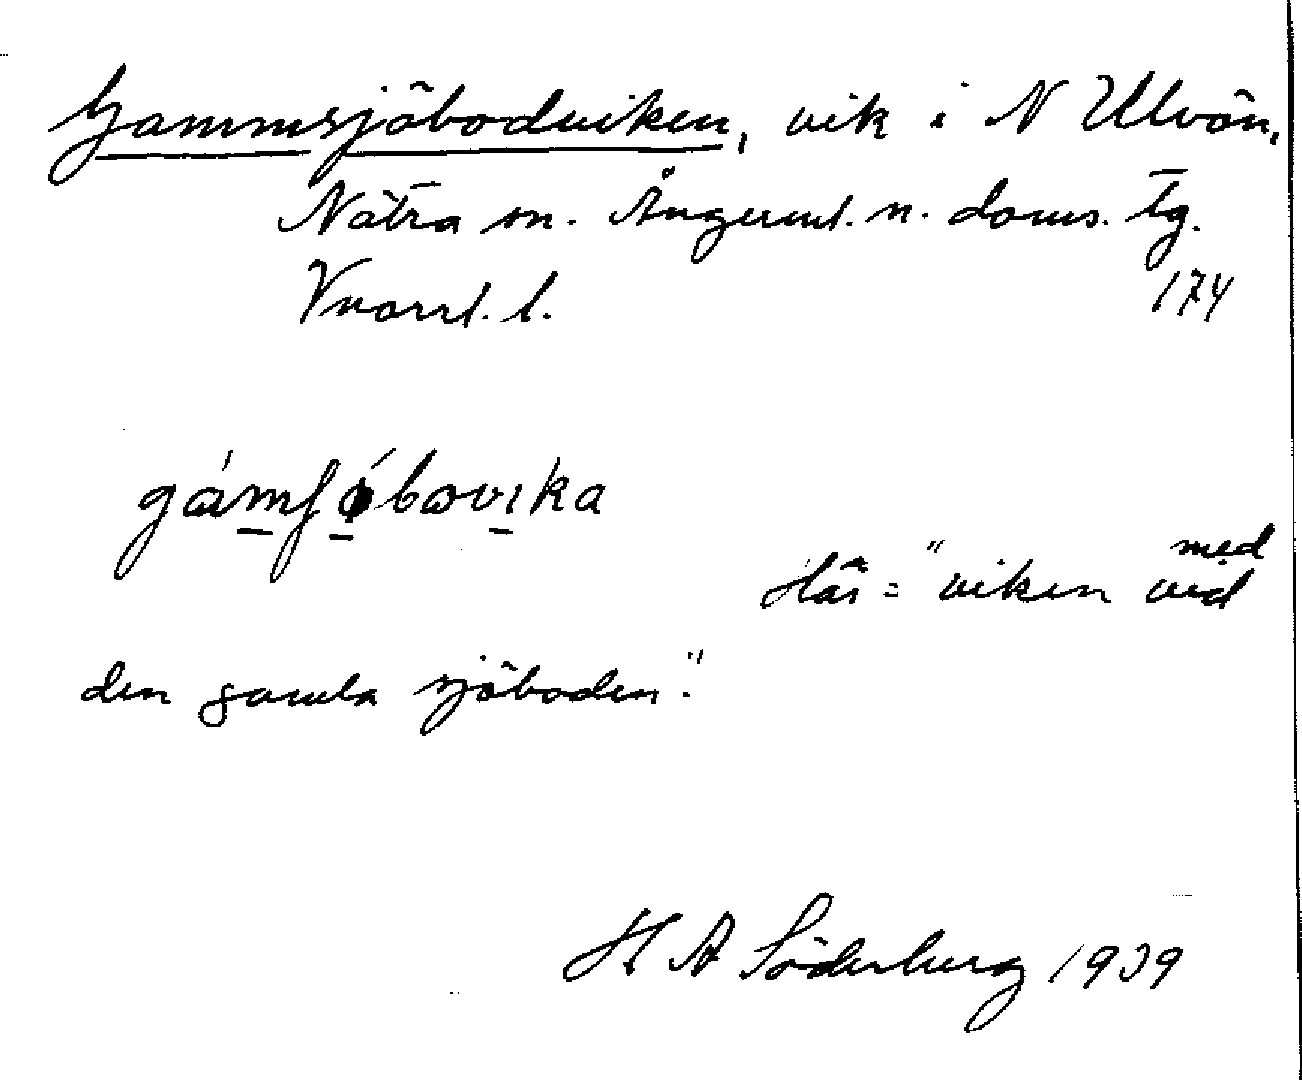 Gammsjöbodviken, vik i N Ulvön,
Nätra sn. Ångerml. n. doms. tg.
Vnorrl. l. 174
gámʃǿbɷvika
Här = "viken med vid
den gamla sjöboden."
H A Söderberg 1939